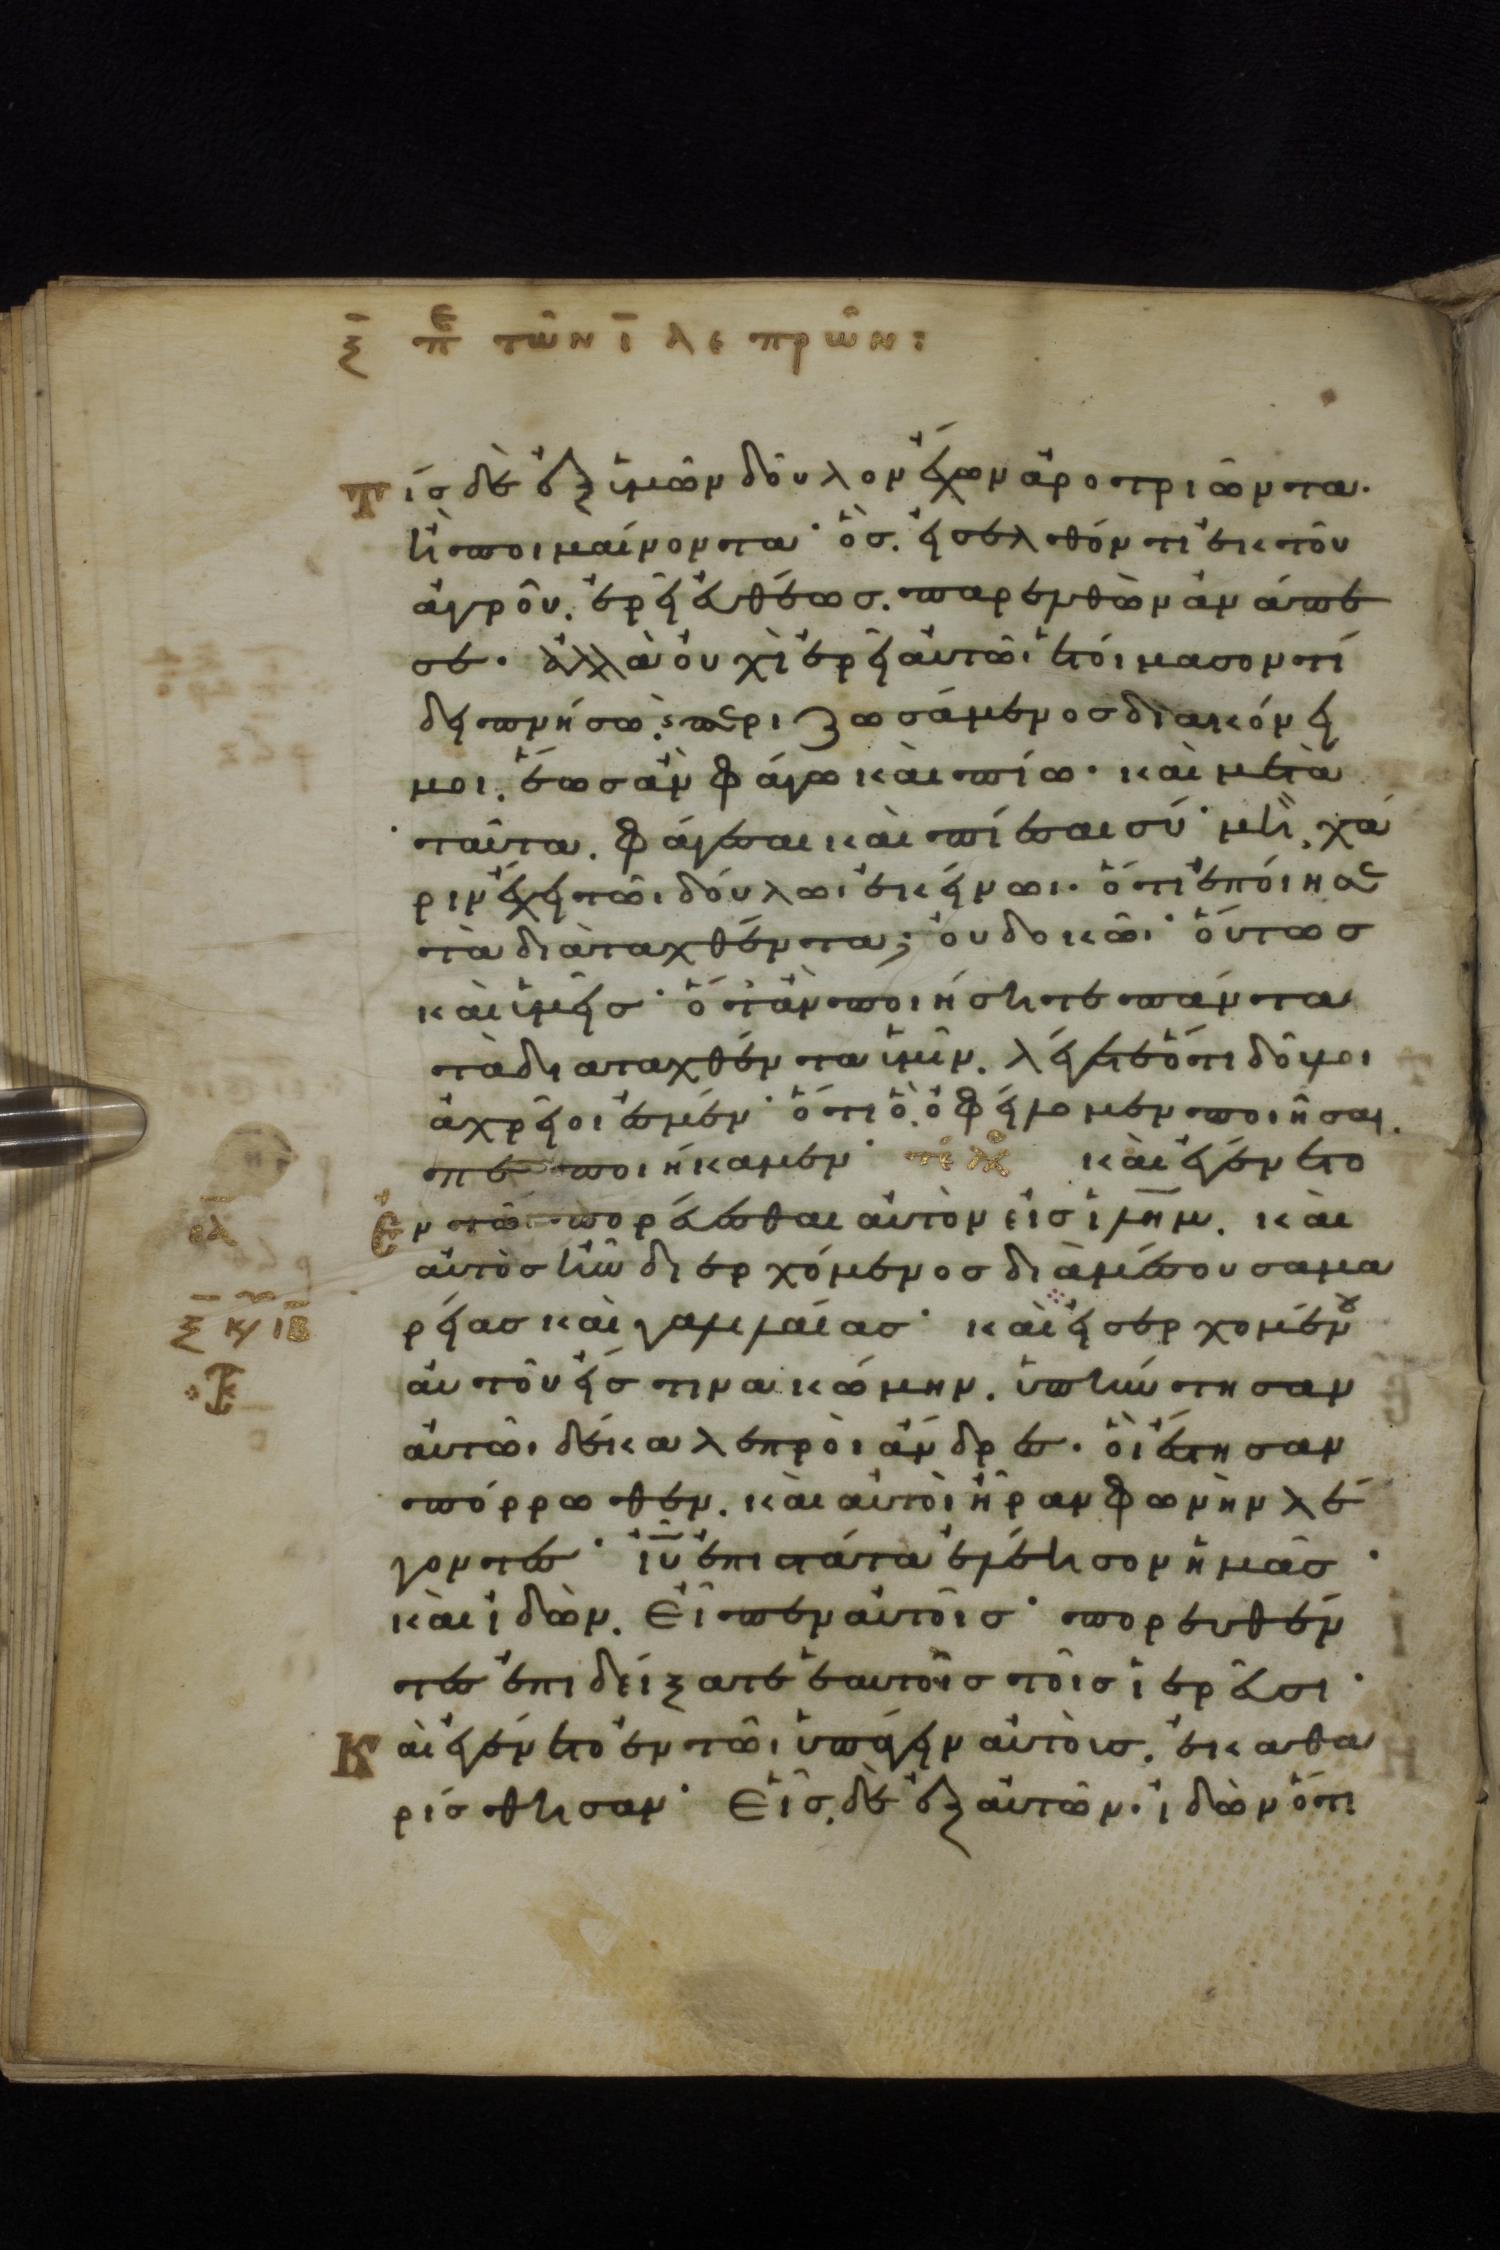 ξ̄ πε τῶν ῑ λεπρῶν:
Τίσ δὲ ἐξ ὑμῶν δοῦλον ἔχων ἀροτριῶντα.
ἢ ποιμαίνοντα· ὃσ. εἰσελθόντι ἐκ τοῦ
ἀγροῦ. ἐρεῖ εὐθέωσ. παρελθὼν ἀνάπε
σε. ἀλλὰ οὐχὶ ἐρεῖ αὐτῶι ἑτοίμασον τί
δειπνήσω. ϛ περιζωσάμενοσ διακόνει
μοι. ἕωσ ἂν φάγω καὶ πίω. καὶ μετὰ
ταῦτα. φάγεσαι καὶ πίεσαι σύ· μὴ, χά
ριν ἔχει τῶι δούλωι ἐκείνωι. ὅτι ἐποίησε
τὰ διαταχθέντα; οὐ δοκῶ· οὕτωσ
καὶ ὑμεῖσ· ὅταν ποιήσητε πάντα
τὰ διαταχθέντα ὑμῖν. λέγετε ὅτι δοῦλοι
ἀχρεῖοι ἐσμέν· ὅτι ὃ. ὀφείλομεν ποιῆσαι.
πεποιήκαμεν· τέλ καὶ ἐγένετο
Ἐν τῶ πορεύεσθαι αὐτὸν εἰσ ἰλημ. καὶ
αὐτὸσ ἦν διερχόμενοσ διὰ μέσου σαμα
ρείασ καὶ γαλιλαίασ· καὶ εἰσερχομένου
αὐτοῦ εἴσ τινα κώμην. ὑπήντησαν
αὐτῶι δέκα λεπροὶ ἄνδρεσ. οἳ ἔστησαν
πόρρωθεν. καὶ αὐτοὶ ἦραν φωνὴν λέ
γοντεσ· ἰῦ ἐπιστάτα ἐλέησον ἡμᾶσ·
καὶ ἰδὼν. εἶπεν αὐτοῖσ· πορευθέν
τεσ ἐπιδείξατε ἑαυτοῖσ τοῖσ ἱερεῦσι·
Καὶ ἐγένετο ἐν τῶι ὑπάγειν αὐτοὺσ. ἐκαθα
ρίσθησαν· εἷσ. δὲ ἐξ αὐτῶν. ἰδὼν ὅτι
σλ
ξ̄ κυ ιβ